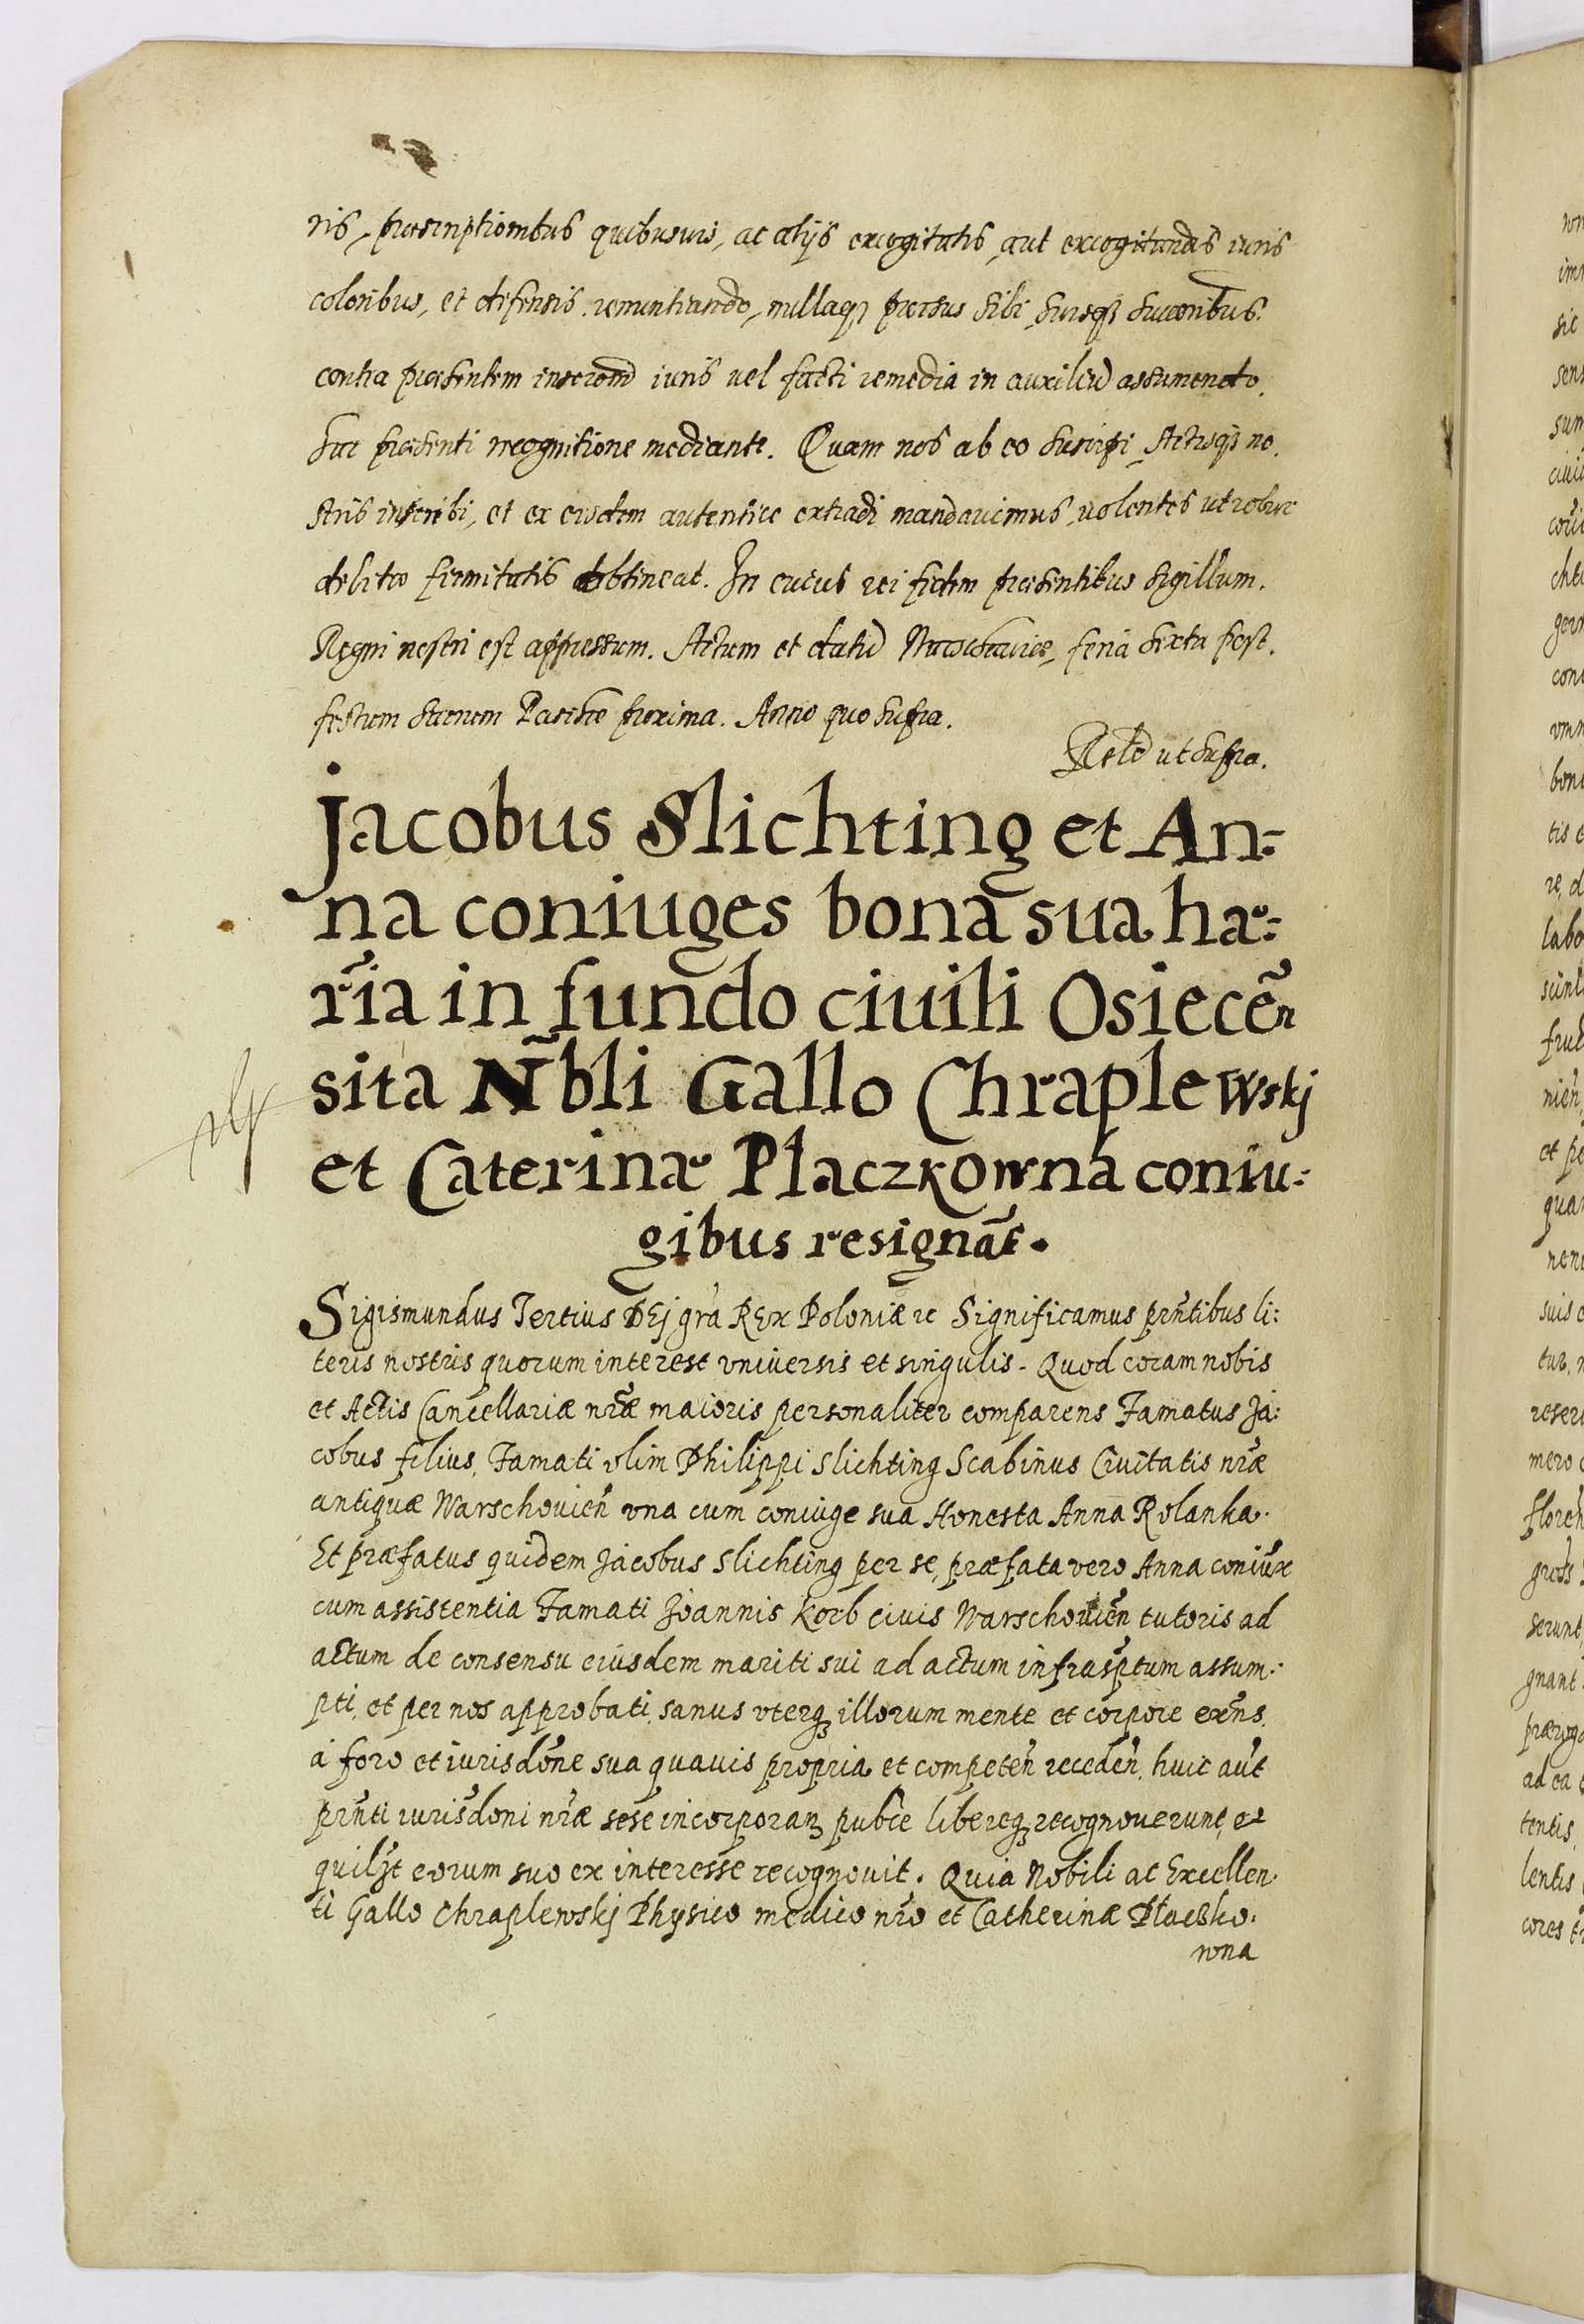 ris, præscriptionibus quibusuis, ac alijs excogitatis, aut excogitandis iuris
coloribus, et defensis renuntiando, nullaqꝫ prorsus sibi suisqꝫ succoribus
contra præsentem inscrōnē iuris uel facti remedia in auxiliū assumendo.
Suæ præsenti recognitione mediante. Quam nos ab eo suscipi, Actisqꝫ no.
stris inscribi, et ex eisdem autentice extradi mandauimus, uolentes ut robur
debitæ firmitatis obtineat. In cuius rei fidem præsentibus sigillum.
Regni nostri est appressum. Actum et datū Warschauiæ, feria sixta post.
festum sacrum Paschæ proxima. Anno quo supra.
Relō ut supra.
Jacobus Slichting et An-
na coniuges bona sua hæ-
r̃ia in fundo ciuili Osiecẽn
sita Ñbli Gallo Chraplewskj
et Caterinæ Placzkowna coniu-
gibus resignãt.
Sigismundus Tertius DEj grã REx Poloniæ ꝛc Significamus prñtibus li:
teris nostris quorum interest vniuersis et singulis. Quod coram nobis
et Actis Cancellariæ nr̃æ maioris personaliter comparens Famatus Ja:
cobus filius, Famati olim Philippi Slichting Scabinus Ciuitatis nr̃æ
antiquæ Warschouieñ vna cum coniuge sua Honesta Anna Rolanka.
Et præfatus quidem Jacobus Slichting per se, præfata vero Anna coniux
cum assistentia Famati Joannis Korb ciuis Warschouieñ tutoris ad
actum de consensu eiusdem mariti sui ad actum infrasp̃tum assum-
pti, et per nos approbati, sanus vterqꝫ illorum mente et corpore exñs,
á foro et iurisdõne sua quauis propria et competeñ recedeñ, huic aũt
prñti iurisdoñi nr̃æ sese incorporañ, publ̃ce libereqꝫ recognouerunt, et
quilꝫt eorum suo ex interesse recognouit. Quia Nobili ac Excellen-
ti Gallo Chraplewskj Physico medico nr̃o et Catherinæ Płaczko.
wna